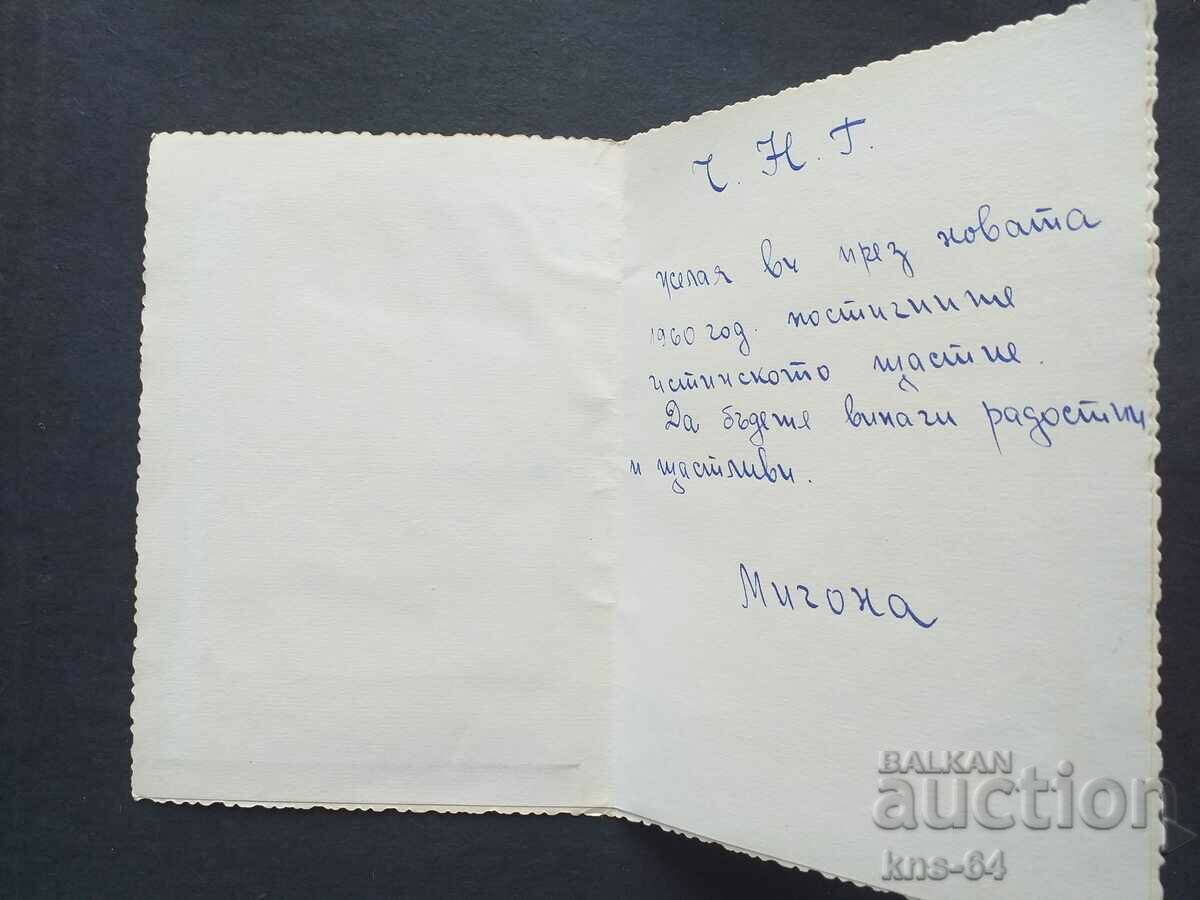 Ч. Н. Г.
желая ви през новата
1960 год. постигните
истинското щастие.
Да бъдете винаги радостни
и щастливи.
Мигона
BALKAN
auction
kns-64